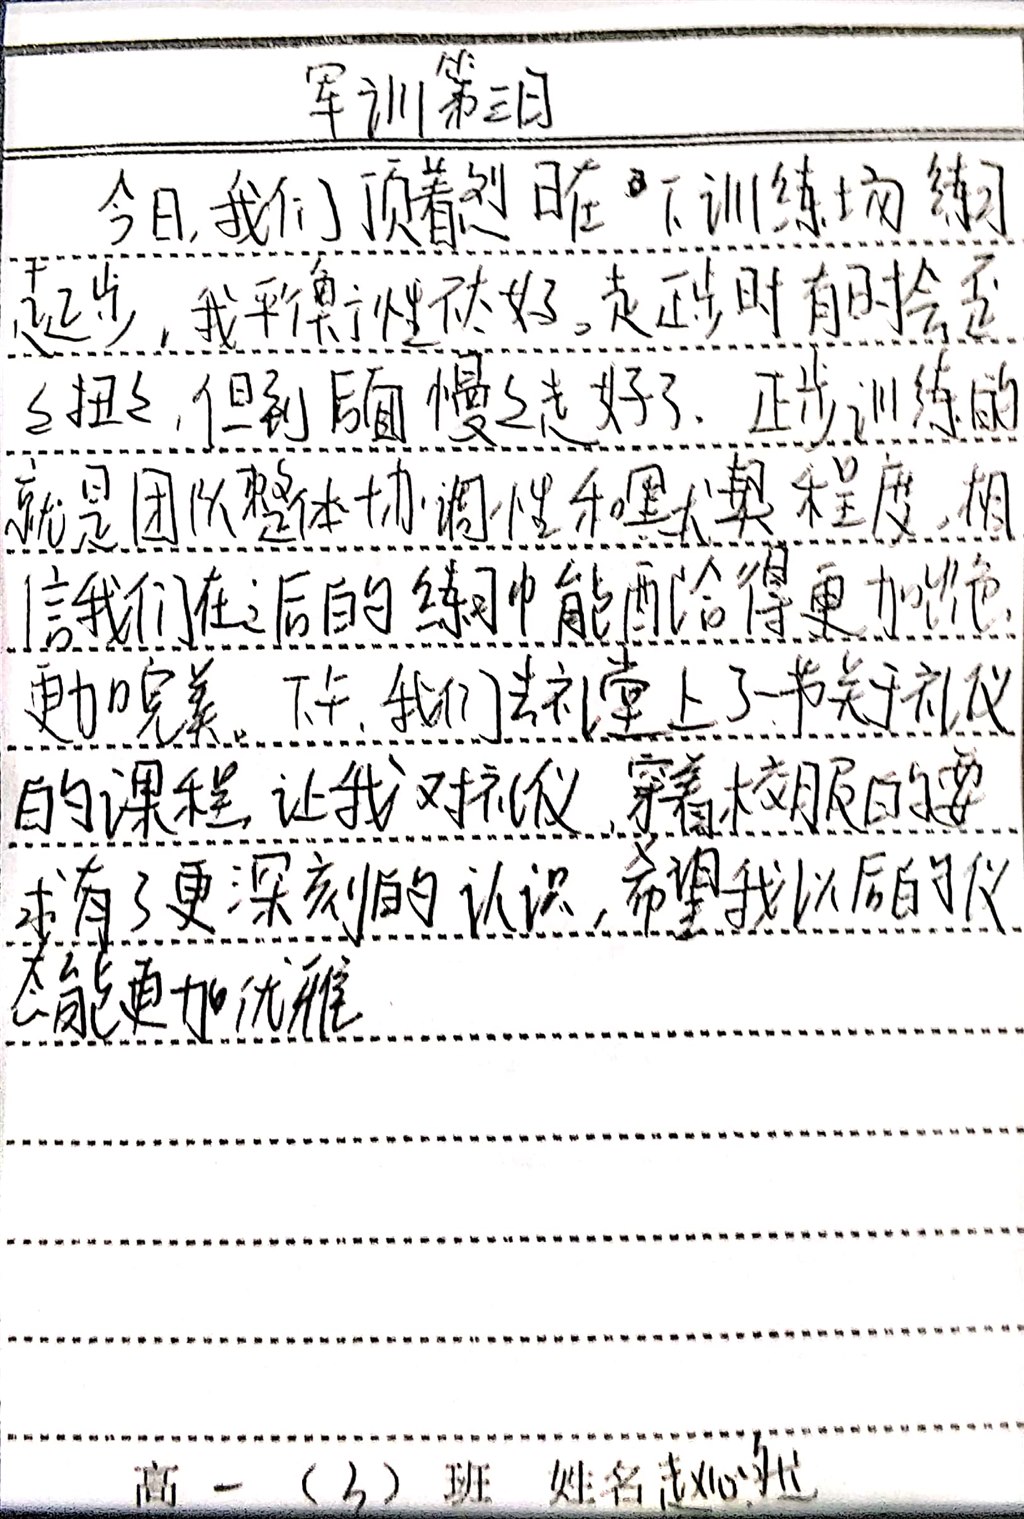 军训第三日
今日,我们顶着烈日在下训练场练习
起步,我平衡性不太好。走正步时有时会歪
々扭々,但到后面慢々走好了.正步训练的
就是团队整体协调性和默契程度,相
信我们在之后的练习中能配合得更加出色,
更加完美。下午,我们去礼堂上了一节关于礼仪
的课程,让我对礼仪,穿着校服的要
求有了更深刻的认识,希望我以后的仪
态能更加优雅
高一(3)班 姓名赵